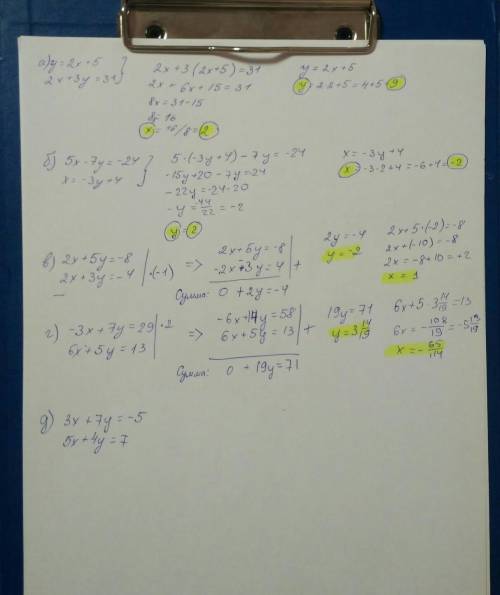 а) y=2x+5
2x+3y=31
2x+3(2x+5)=31
2x+6x+15=31
8x=31-15
8=16
x=16/8=2
y=2x+5
y=2·2+5=4+5=9
б) 5x-7y=-24
x=-3y+4
5·(-3y+4)-7y=-24
-15y+20-7y=24
-22y=-24-20
-y=44/22=-2
y=2
x=-3y+4
x=-3·2+4=-6+4=-2
в) 2x+5y=-8
2x+3y=-4 |·(-1)
=> 2x+5y=-8
-2x-3y=4 | +
Сумма: 0+2y=-4
2y=-4
y=-2
2x+5·(-2)=-8
2x+(-10)=-8
2x=-8+10=+2
x=1
г) -3x+7y=29 |·2
6x+5y=13
=> -6x+14y=58
6x+5y=13 | +
Сумма: 0+19y=71
19y=71
y=3 14/19
6x+5·3 14/19=13
6x=-108/19=-5 13/19
x=-65/114
д) 3x+7y=-5
5x+4y=7